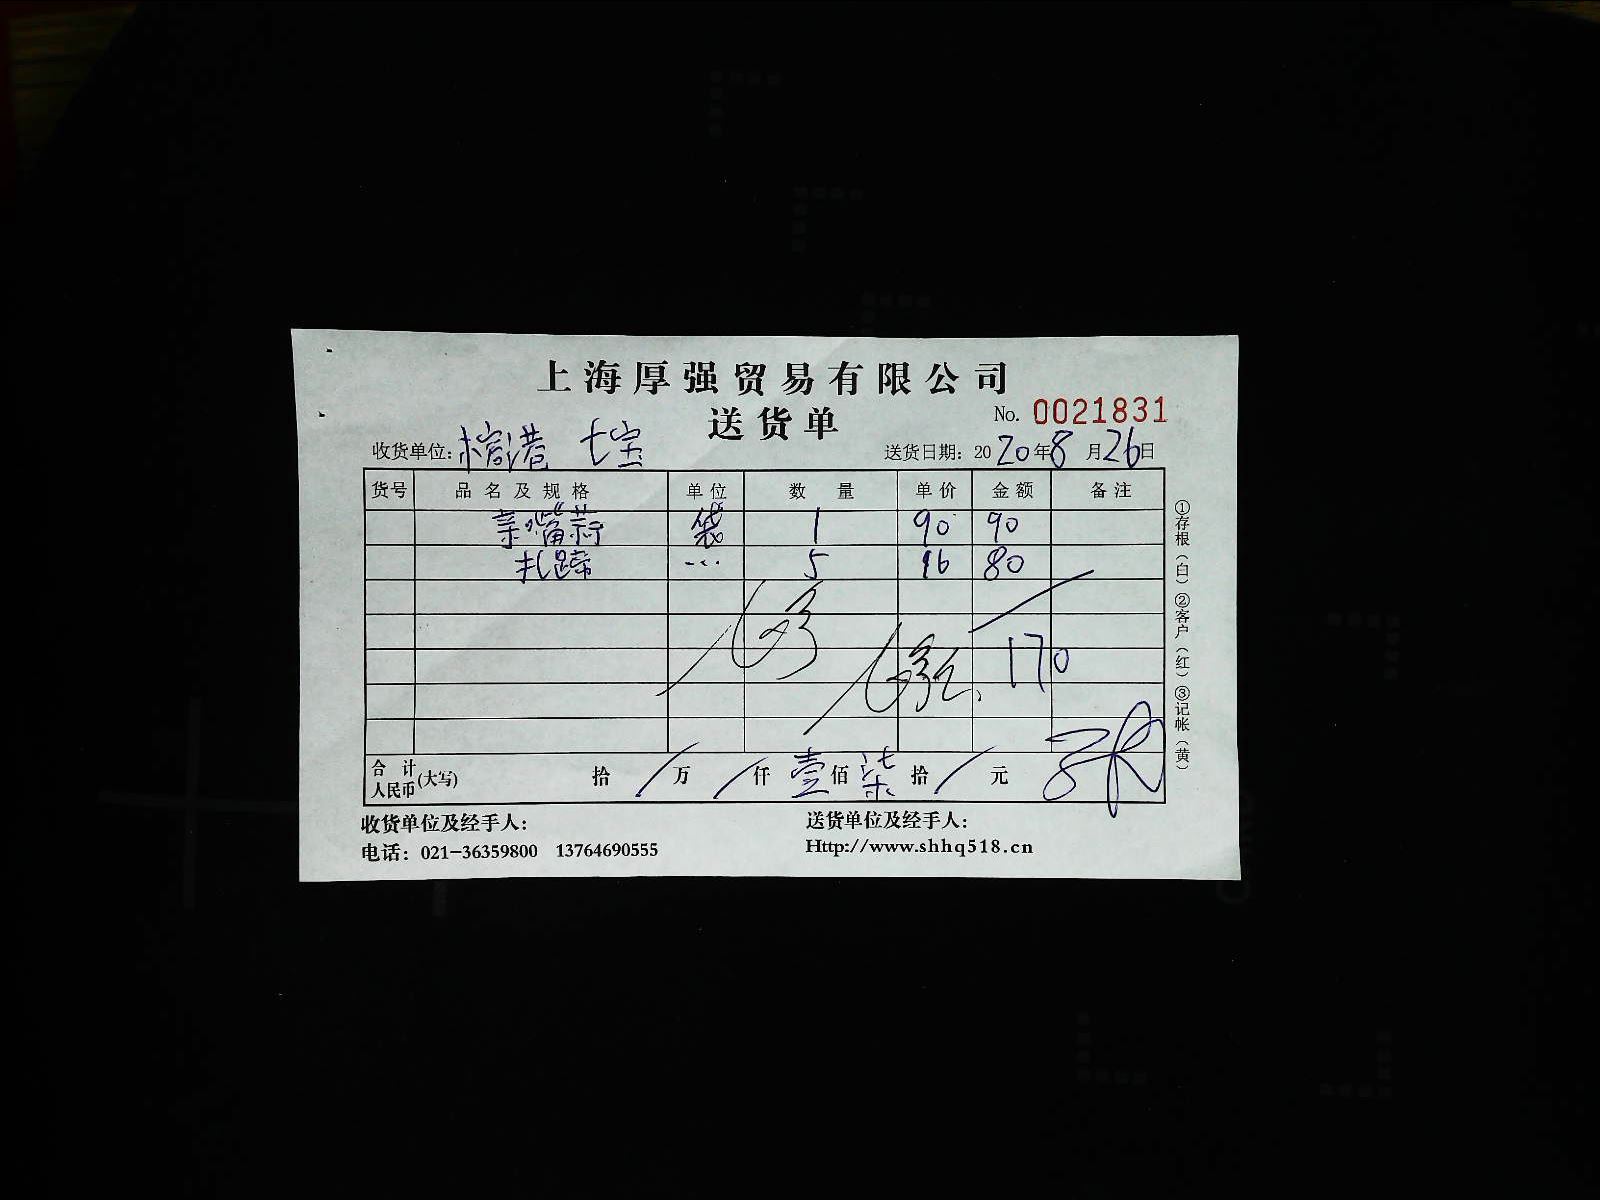 上海厚强贸易有限公司
送货单
No. 0021831
收货单位: 港 七宝
送货日期: 2020年8月26日
货号 品名及规格 单位 数量 单价 金额 备注
亲嘴蒜 袋 1 90 90
扎蹄 … 5 16 80
170
合计人民币(大写) 拾 / 万 / 仟 壹 佰 柒 拾 / 元
①存根(白)②客户(红)③记帐(黄)
收货单位及经手人: 送货单位及经手人:
电话: 021-36359800 13764690555 Http://www.shhq518.cn